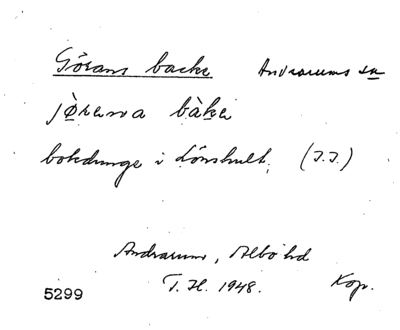 Görans backe Andrarums sn
jø̀rena bàke
bokdunge i Lönshult. (J.J.)
Andrarum, Albo hd
T. H. 1948. Kop.
5299